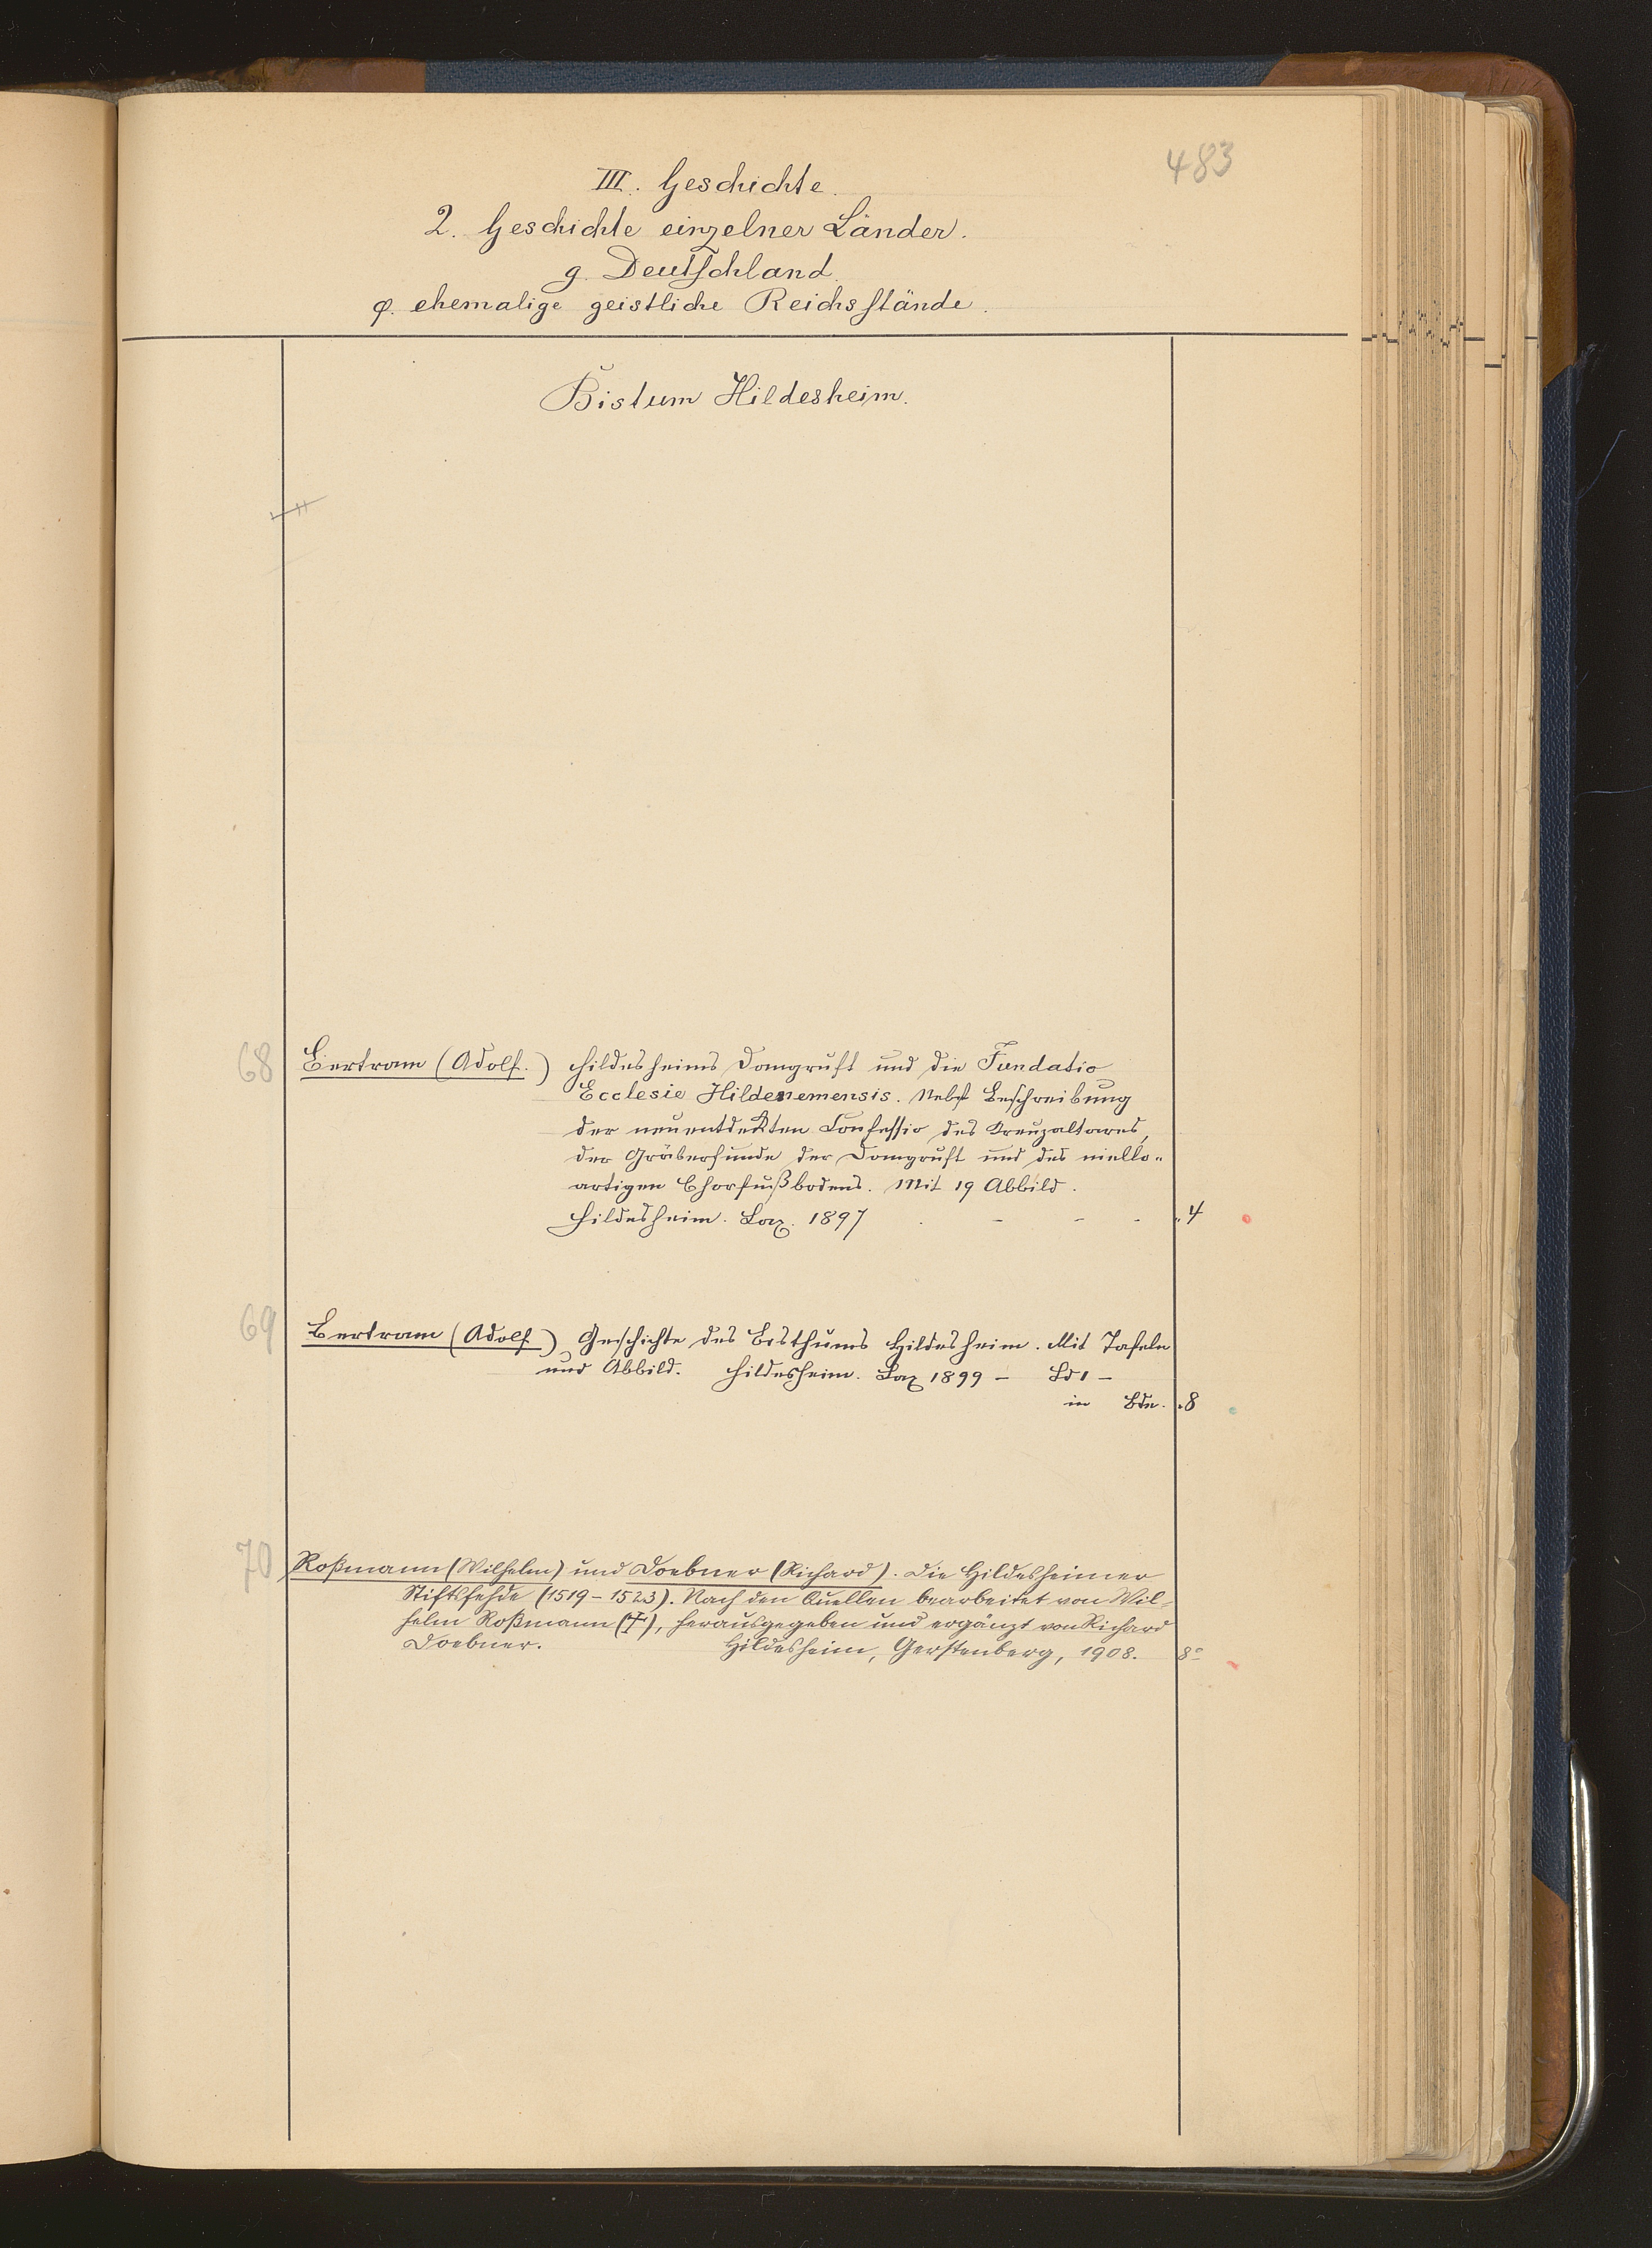 483
III. Geschichte.
2. Geschichte einzelner Länder.
g. Deutschland.
φ. ehemalige geistliche Reichsstände.
Bistum Hildesheim.
68 Bertram (Adolf.) Hildesheims Domgruft und die Fundatio
Ecclesie Hildenemensis. Nebst Beschreibung
der neuentdekten Confessio des Kreuzaltares,
der Gräberfunde der Domgruft und des niello-
artigen Chorfußbodens. Mit 19 Abbild.
Hildesheim. Lax. 1897 . - - - 4
69 Bertram (Adolf) Geschichte des Bisthums Hildesheim. Mit Tafeln
und Abbild. Hildesheim. Lax 1899 - Bd 1 -
in Bdn. 8
70 Roßmann (Wilhelm) und Doebner (Richard). Die Hildesheimer
Stiftsfehde (1519-1523). Nach den Quellen bearbeitet von Wil-
helm Roßmann (†), herausgegeben und ergänzt von Richard
Doebner. Hildesheim, Gerstenberg, 1908. 8°